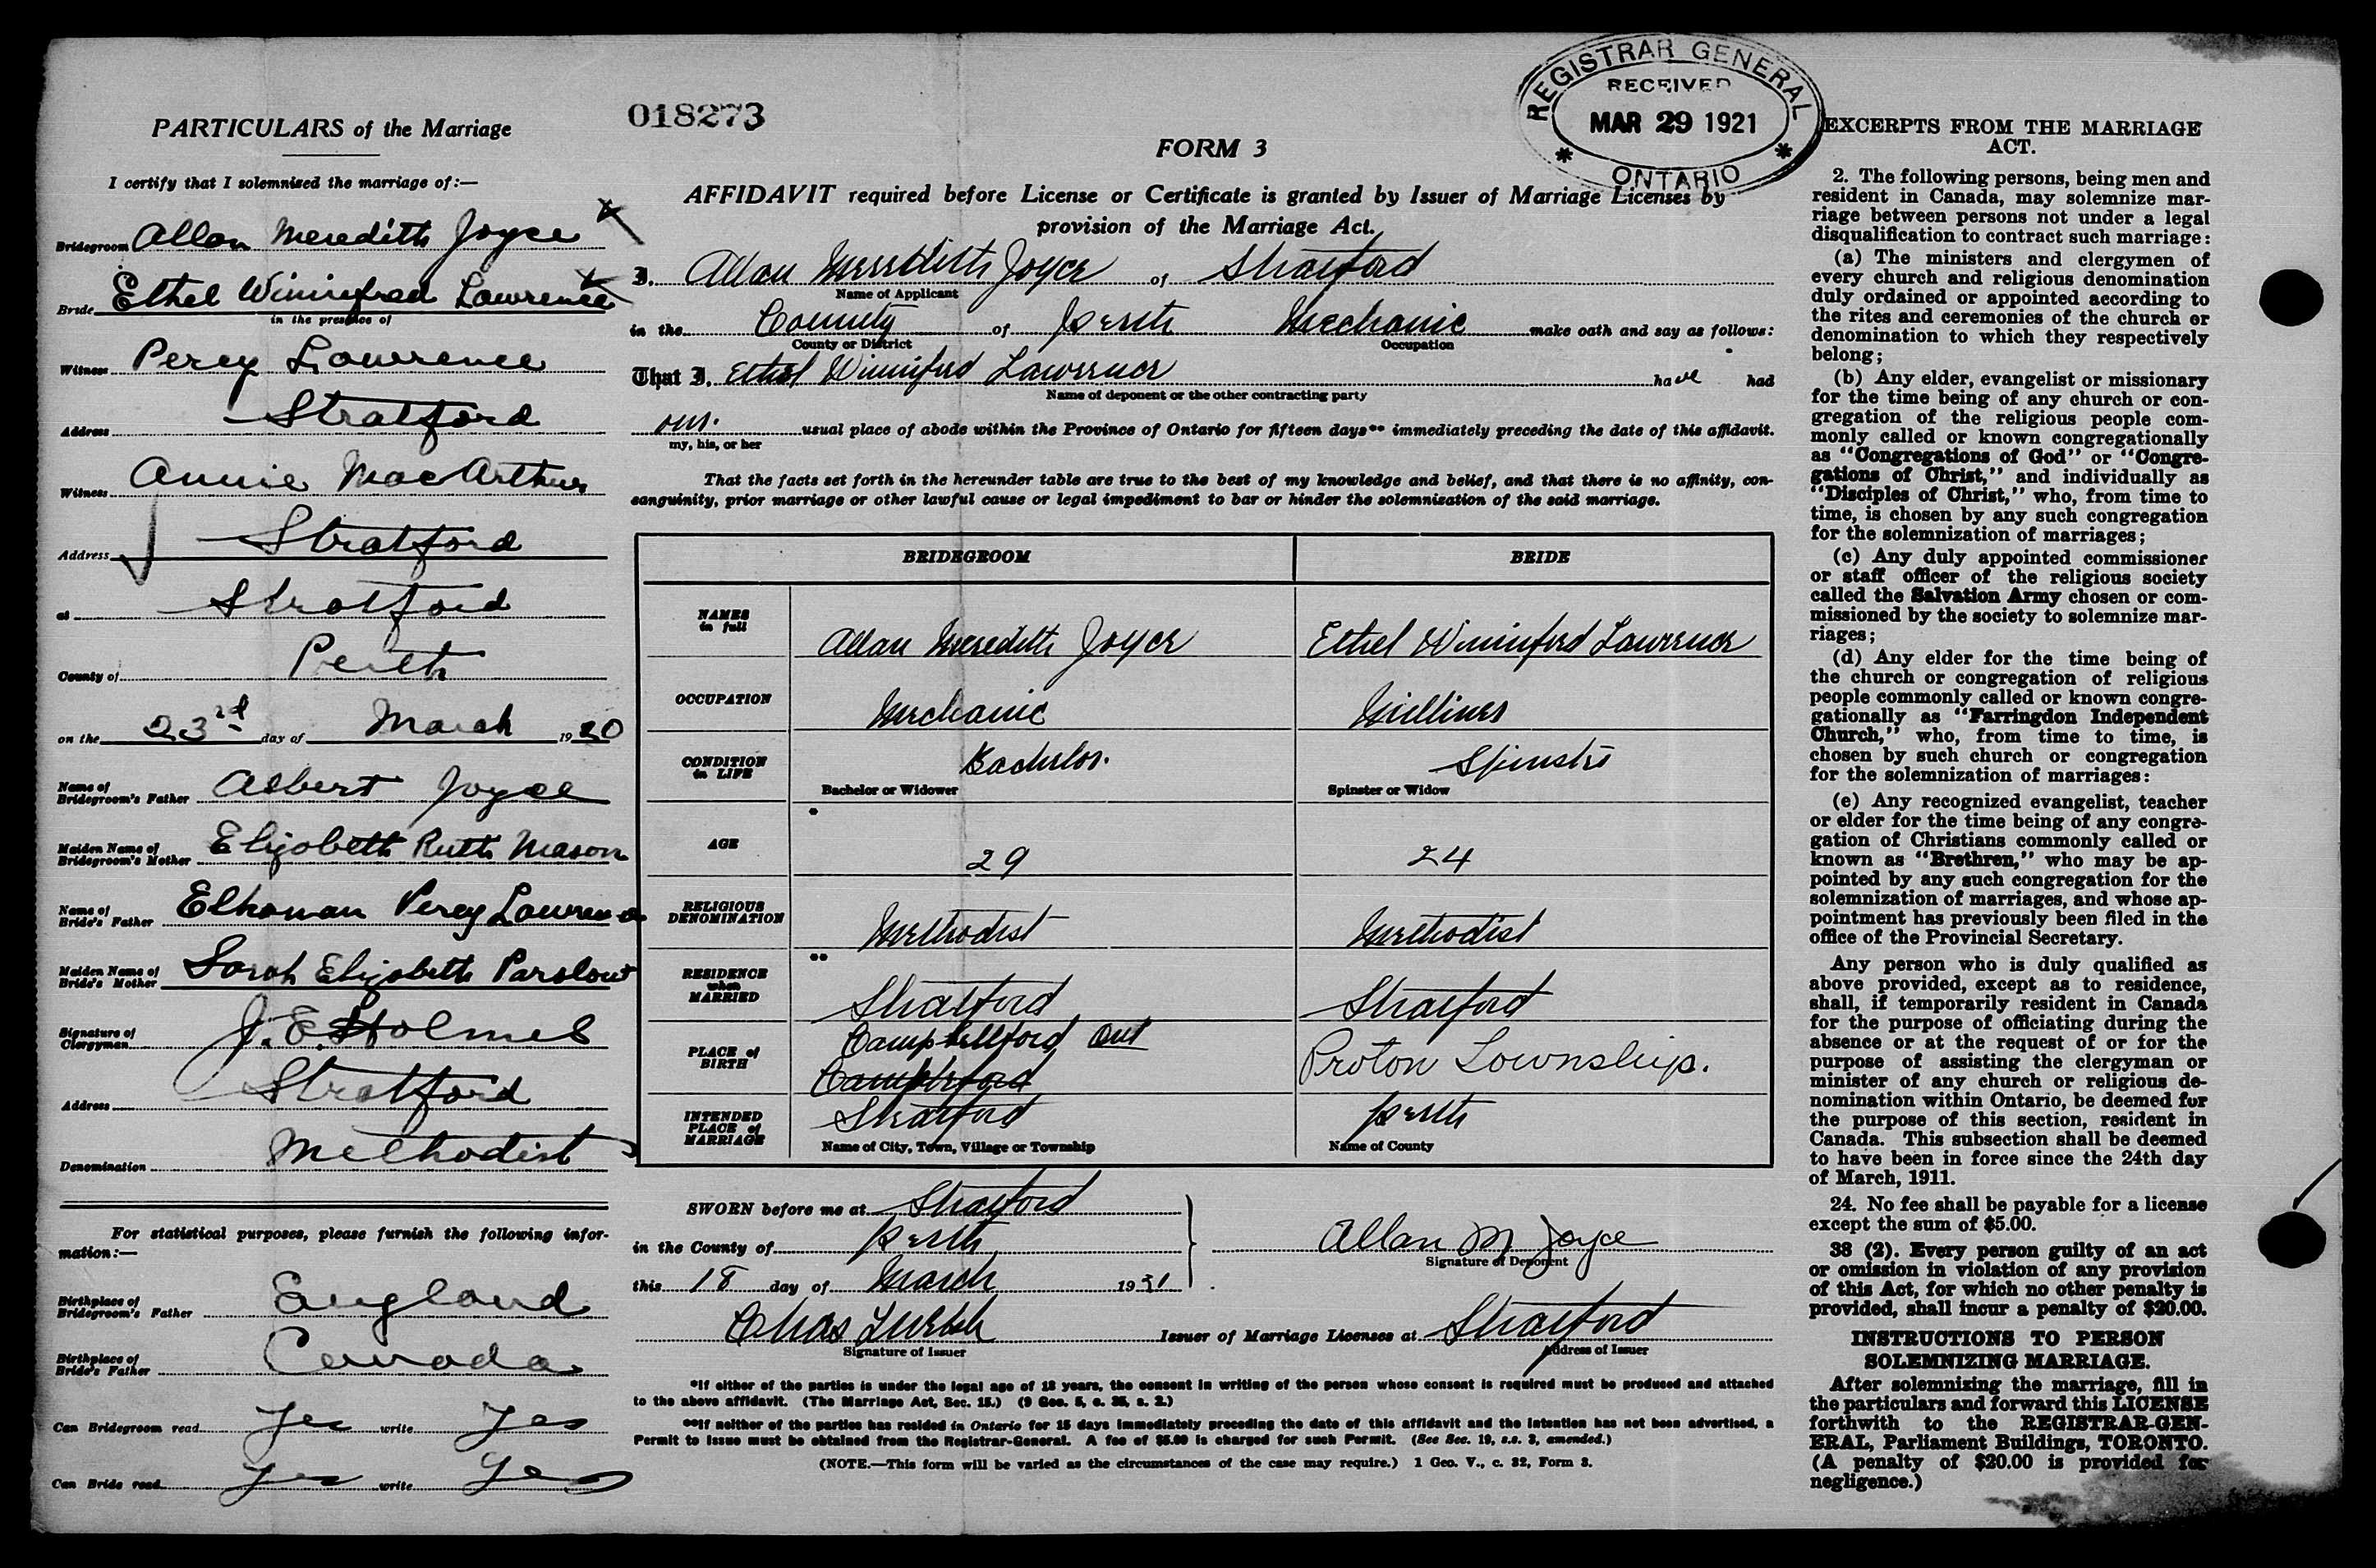 PARTICULARS of the Marriage
I certify that I solemnized the marriage of:—
Bridegroom Allan Meredith Joyce
Bride Ethel Winnifred Lawrence
in the presence of
Witness Percy Lawrence
Address Stratford
Witness Annie MacArthur
Address Stratford
at Stratford
County of Perth
on the 23rd day of March 1920
Name of
Bridegroom's Father Albert Joyce
Maiden Name of
Bridegroom's Mother Elizabeth Ruth Mason
Name of
Bride's Father Elhanan Percy Lawrence
Maiden Name of
Bride's Mother Sarah Elizabeth Parslow
Signature of
Clergyman J. E. Holmes
Address Stratford
Denomination Methodist
For statistical purposes, please furnish the following infor-
mation:—
Birthplace of
Bridegroom's Father England
Birthplace of
Bride's Father Canada
Can Bridegroom read Yes write Yes
Can Bride read Yes write Yes
018273
REGISTRAR GENERAL
RECEIVED
MAR 29 1921
ONTARIO
FORM 3
AFFIDAVIT required before License or Certificate is granted by Issuer of Marriage Licenses by
provision of the Marriage Act.
I, Allan Meredith Joyce of Stratford
Name of Applicant
in the County of Perth Mechanic make oath and say as follows:
County or District Occupation
That I, Ethel Winniferd Lawrence have had
Name of deponent or the other contracting party
our usual place of abode within the Province of Ontario for fifteen days** immediately preceding the date of this affidavit.
my, his, or her
That the facts set forth in the hereunder table are true to the best of my knowledge and belief, and that there is no affinity, con-
sanguinity, prior marriage or other lawful cause or legal impediment to bar or hinder the solemnization of the said marriage.
BRIDEGROOM BRIDE
NAMES
in full Allan Meredith Joyce Ethel Winniferd Lawrence
OCCUPATION Mechanic Milliner
CONDITION
in LIFE Bachelor. Spinster
Bachelor or Widower Spinster or Widow
*
AGE 29 24
RELIGIOUS
DENOMINATION Methodist Methodist
**
RESIDENCE
when
MARRIED Stratford Stratford
PLACE of
BIRTH Campbellford Ont Proton Township.
INTENDED
PLACE of
MARRIAGE Stratford Perth
Name of City, Town, Village or Township Name of County
SWORN before me at Stratford
in the County of Perth
this 18 day of March 1921
Allan M Joyce
Signature of Deponent
Chas
Signature of Issuer
Issuer of Marriage Licenses at Stratford
Address of Issuer
*If either of the parties is under the legal age of 18 years, the consent in writing of the person whose consent is required must be produced and attached
to the above affidavit. (The Marriage Act, Sec. 15.) (9 Geo. 5, c. 35, s. 2.)
**If neither of the parties has resided in Ontario for 15 days immediately preceding the date of this affidavit and the intention has not been advertised, a
Permit to issue must be obtained from the Registrar-General. A fee of $5.00 is charged for such Permit. (See Sec. 19, s.s. 3, amended.)
(NOTE.—This form will be varied as the circumstances of the case may require.) 1 Geo. V., c. 32, Form 3.
EXCERPTS FROM THE MARRIAGE
ACT.
2. The following persons, being men and
resident in Canada, may solemnize mar-
riage between persons not under a legal
disqualification to contract such marriage:
(a) The ministers and clergymen of
every church and religious denomination
duly ordained or appointed according to
the rites and ceremonies of the church or
denomination to which they respectively
belong;
(b) Any elder, evangelist or missionary
for the time being of any church or con-
gregation of the religious people com-
monly called or known congregationally
as "Congregations of God" or "Congre-
gations of Christ," and individually as
"Disciples of Christ," who, from time to
time, is chosen by any such congregation
for the solemnization of marriages;
(c) Any duly appointed commissioner
or staff officer of the religious society
called the Salvation Army chosen or com-
missioned by the society to solemnize mar-
riages;
(d) Any elder for the time being of
the church or congregation of religious
people commonly called or known congre-
gationally as "Farringdon Independent
Church," who, from time to time, is
chosen by such church or congregation
for the solemnization of marriages:
(e) Any recognized evangelist, teacher
or elder for the time being of any congre-
gation of Christians commonly called or
known as "Brethren," who may be ap-
pointed by any such congregation for the
solemnization of marriages, and whose ap-
pointment has previously been filed in the
office of the Provincial Secretary.
Any person who is duly qualified as
above provided, except as to residence,
shall, if temporarily resident in Canada
for the purpose of officiating during the
absence or at the request of or for the
purpose of assisting the clergyman or
minister of any church or religious de-
nomination within Ontario, be deemed for
the purpose of this section, resident in
Canada. This subsection shall be deemed
to have been in force since the 24th day
of March, 1911.
24. No fee shall be payable for a license
except the sum of $5.00.
38 (2). Every person guilty of an act
or omission in violation of any provision
of this Act, for which no other penalty is
provided, shall incur a penalty of $20.00.
INSTRUCTIONS TO PERSON
SOLEMNIZING MARRIAGE.
After solemnizing the marriage, fill in
the particulars and forward this LICENSE
forthwith to the REGISTRAR-GEN-
ERAL, Parliament Buildings, TORONTO.
(A penalty of $20.00 is provided for
negligence.)